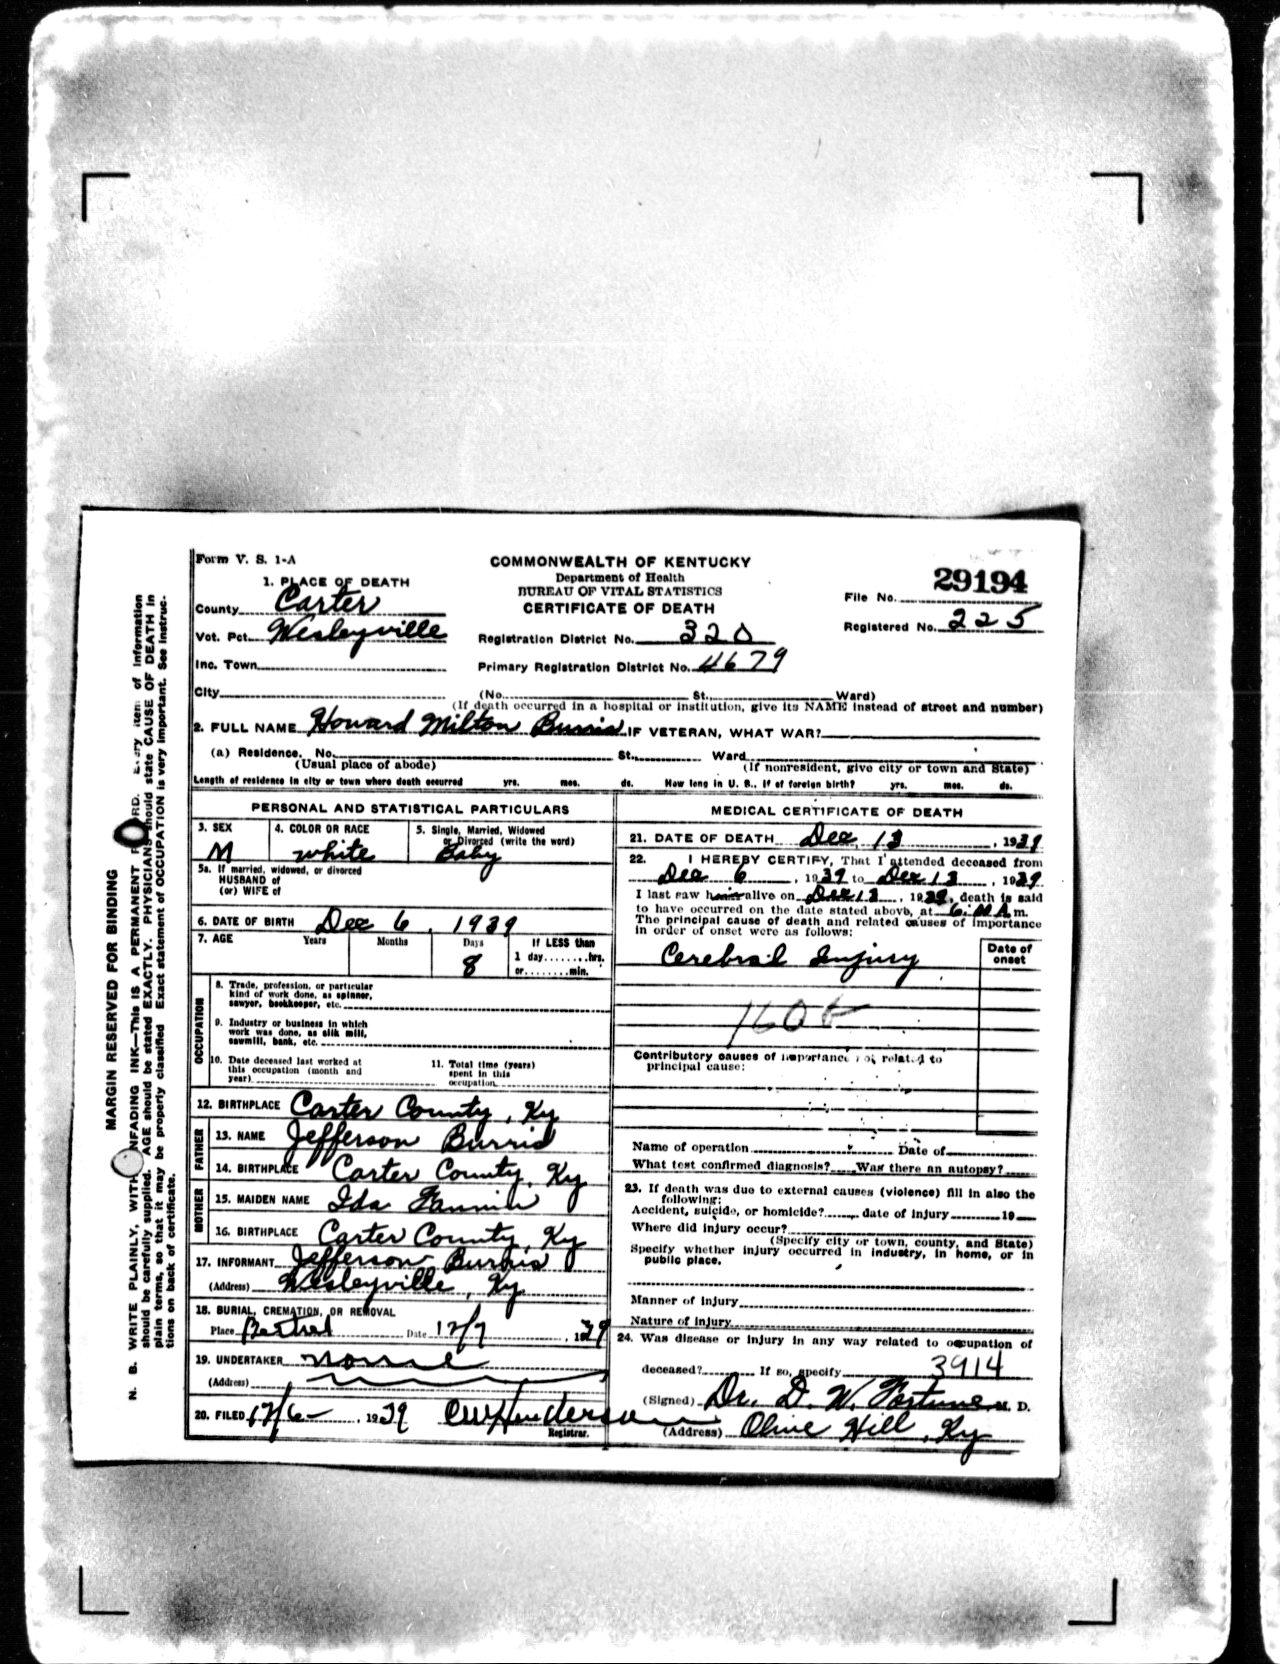 Form V. S. 1-A
COMMONWEALTH OF KENTUCKY
Department of Health
BUREAU OF VITAL STATISTICS
CERTIFICATE OF DEATH
File No. 29194
Registered No. 225
1. PLACE OF DEATH
County Carter
Vot. Pct. Wesleyville
Registration District No. 320
Inc. Town
Primary Registration District No. 4679
City (No. St., Ward)
(If death occurred in a hospital or institution, give its NAME instead of street and number)
2. FULL NAME Howard Milton Burris IF VETERAN, WHAT WAR?
(a) Residence. No. St., Ward
(Usual place of abode) (If nonresident, give city or town and State)
Length of residence in city or town where death occurred yrs. mos. ds. How long in U. S., if of foreign birth? yrs. mos. ds.
PERSONAL AND STATISTICAL PARTICULARS
3. SEX
M
4. COLOR OR RACE
white
5. Single, Married, Widowed
or Divorced (write the word)
Baby
5a. If married, widowed, or divorced
HUSBAND of
(or) WIFE of
6. DATE OF BIRTH Dec 6, 1939
7. AGE Years Months Days If LESS than
8 1 day........hrs.
or........min.
OCCUPATION
8. Trade, profession, or particular
kind of work done, as spinner,
sawyer, bookkeeper, etc.
9. Industry or business in which
work was done, as silk mill,
sawmill, bank, etc.
10. Date deceased last worked at
this occupation (month and
year)
11. Total time (years)
spent in this
occupation
12. BIRTHPLACE Carter County, Ky
FATHER
13. NAME Jefferson Burris
14. BIRTHPLACE Carter County, Ky
MOTHER
15. MAIDEN NAME Ida Fannin
16. BIRTHPLACE Carter County, Ky
17. INFORMANT Jefferson Burris
(Address) Wesleyville, Ky
18. BURIAL, CREMATION, OR REMOVAL
Place Date 12/7, 1939
19. UNDERTAKER
(Address)
20. FILED 12/6, 1939 CW Henderson
Registrar.
MEDICAL CERTIFICATE OF DEATH
21. DATE OF DEATH Dec 13, 1939
22. I HEREBY CERTIFY, That I attended deceased from
Dec 6, 1939 to Dec 13, 1939
I last saw him alive on Dec 13, 1939, death is said
to have occurred on the date stated above, at 6: A m.
The principal cause of death and related causes of importance
in order of onset were as follows:
Date of
onset
Cerebral Injury
160
Contributory causes of importance not related to
principal cause:
Name of operation Date of
What test confirmed diagnosis? Was there an autopsy?
23. If death was due to external causes (violence) fill in also the
following:
Accident, suicide, or homicide? date of injury 19
Where did injury occur?
(Specify city or town, county, and State)
Specify whether injury occurred in industry, in home, or in
public place.
Manner of injury
Nature of injury
24. Was disease or injury in any way related to occupation of
deceased? If so, specify 3914
(Signed) Dr. D. W. Fortune M. D.
(Address) Olive Hill, Ky
MARGIN RESERVED FOR BINDING
N. B. WRITE PLAINLY, WITH UNFADING INK—THIS IS A PERMANENT RECORD. Every item of information
should be carefully supplied. AGE should be stated EXACTLY. PHYSICIANS should state CAUSE OF DEATH in
plain terms, so that it may be properly classified Exact statement of OCCUPATION is very important. See instruc-
tions on back of certificate.